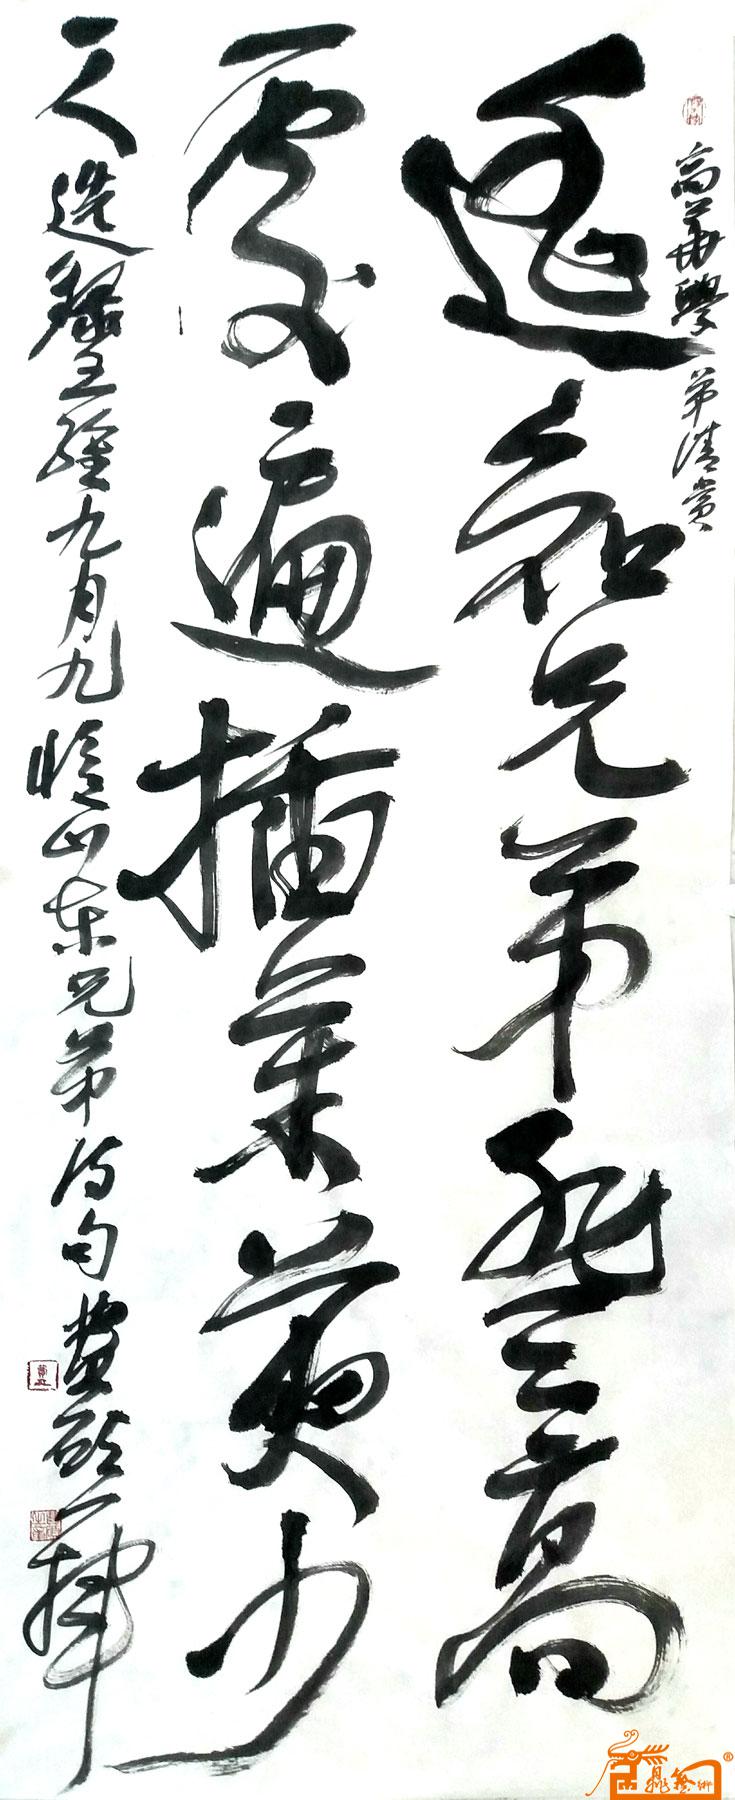 高華學弟清賞
遥知兄弟登高
處遍插茱萸少
一人 選錄王維九月九憶山東兄弟詩句